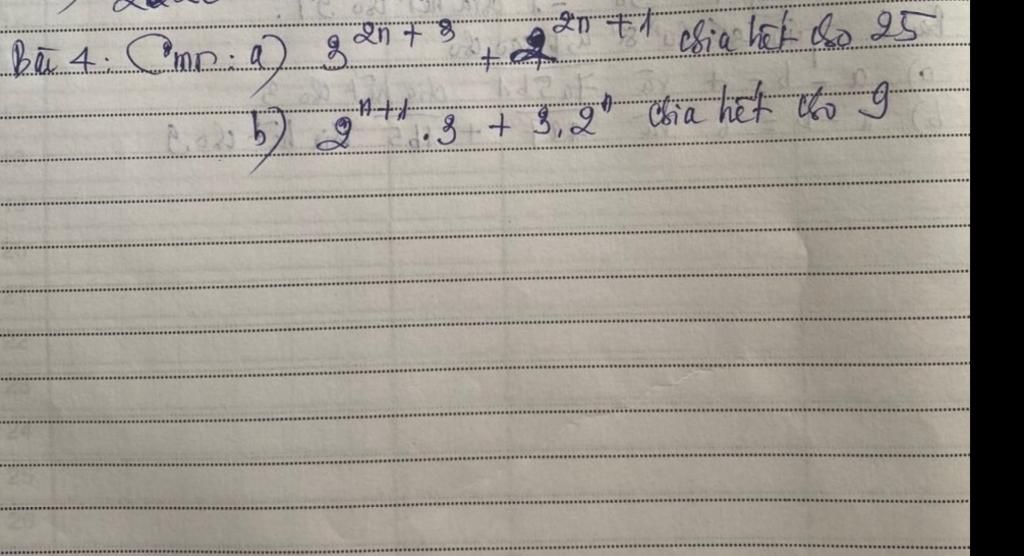 Bài 4: Cmr: a) 3^{2n+3} + 2^{2n+1} chia hết cho 25
b) 2^{n+1}.3 + 3.2^n chia hết cho 9